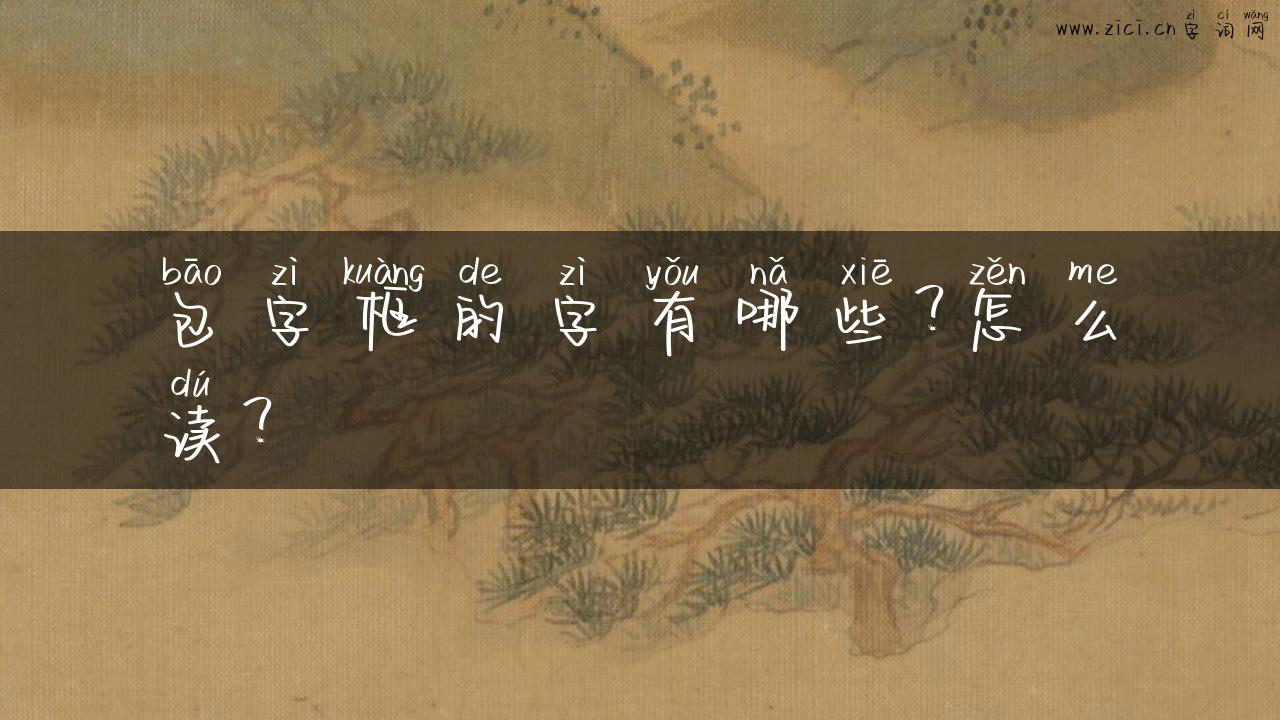 zì cí wǎng
www.zici.cn 字 词 网
bāo zì kuàng de zì yǒu nǎ xiē zěn me
包 字 框 的 字 有 哪 些 ？怎 么
dú
读 ？